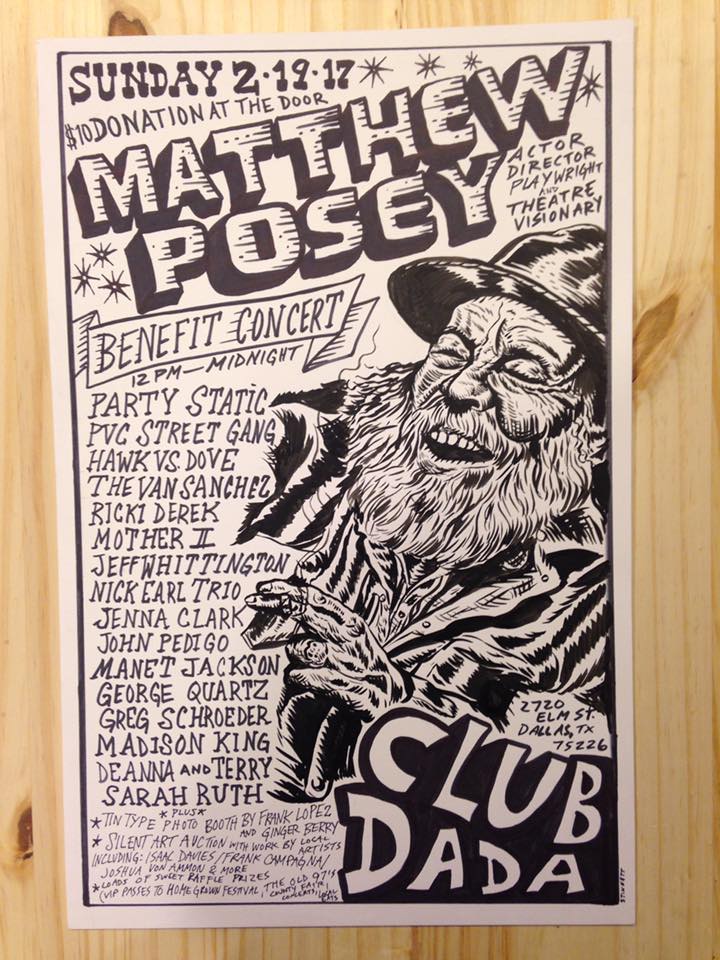 SUNDAY 2·19·17
$10 DONATION AT THE DOOR
MATTHEW
POSEY
ACTOR
DIRECTOR
PLAYWRIGHT
AND
THEATRE
VISIONARY
BENEFIT CONCERT
12PM — MIDNIGHT
PARTY STATIC
PVC STREET GANG
HAWK VS. DOVE
THE VAN SANCHEZ
RICKI DEREK
MOTHER II
JEFF WHITTINGTON
NICK EARL TRIO
JENNA CLARK
JOHN PEDIGO
MANET JACKSON
GEORGE QUARTZ
GREG SCHROEDER
MADISON KING
DEANNA AND TERRY
SARAH RUTH
*PLUS*
*TIN TYPE PHOTO BOOTH BY FRANK LOPEZ
AND GINGER BERRY
*SILENT ART AUCTION WITH WORK BY LOCAL
ARTISTS
INCLUDING: ISAAC DAVIES/FRANK CAMPAGNA/
JOSHUA VON AMMON & MORE
*LOADS OF SWEET RAFFLE PRIZES
(VIP PASSES TO HOMEGROWN FESTIVAL, THE OLD 97'S
COUNTY FAIR,
CONCERTS, LOCAL
EATS
2720
ELM ST.
DALLAS, TX
75226
CLUB
DADA